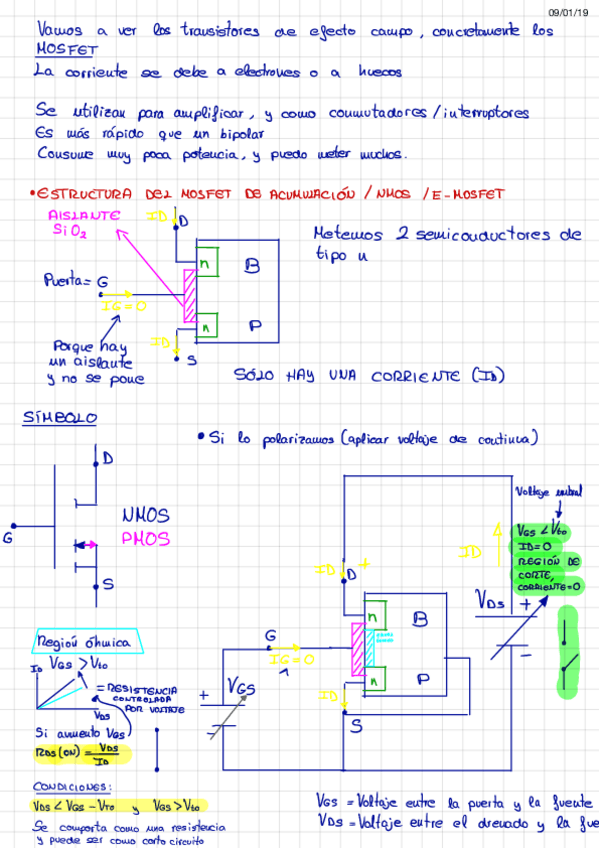 09/01/19
Vamos a ver los transistores de efecto campo, concretamente los
MOSFET
La corriente se debe a electrones o a huecos
Se utilizan para amplificar, y como conmutadores/interruptores
Es más rápido que un bipolar
Consume muy poca potencia, y puedo meter muchos.
• ESTRUCTURA DEL MOSFET DE ACUMULACIÓN / NMOS / E-MOSFET
AISLANTE
SiO2
ID
D
n
B
Metemos 2 semiconductores de
tipo n
Puerta= G
IG=0
n
P
ID
S
Porque hay
un aislante
y no se pone
SÓLO HAY UNA CORRIENTE (ID)
SÍMBOLO
• Si lo polarizamos (aplicar voltaje de continua)
D
G
NMOS
PMOS
S
Voltaje umbral
VGS < Vto
ID=0
REGIÓN DE
CORTE,
CORRIENTE=0
ID
ID
+
D
VDS
+
-
n
B
G
IG=0
P
n
ID
S
+
VGS
-
Región óhmica
ID
VGS > Vto
= RESISTENCIA
CONTROLADA
POR VOLTAJE
VDS
Si aumento VGS
RDS(ON) = VDS / ID
CONDICIONES:
VDS < VGS - VTO y VGS > Vto
Se comporta como una resistencia
y puede ser como corto circuito
VGS = Voltaje entre la puerta y la fuente
VDS = Voltaje entre el drenado y la fue